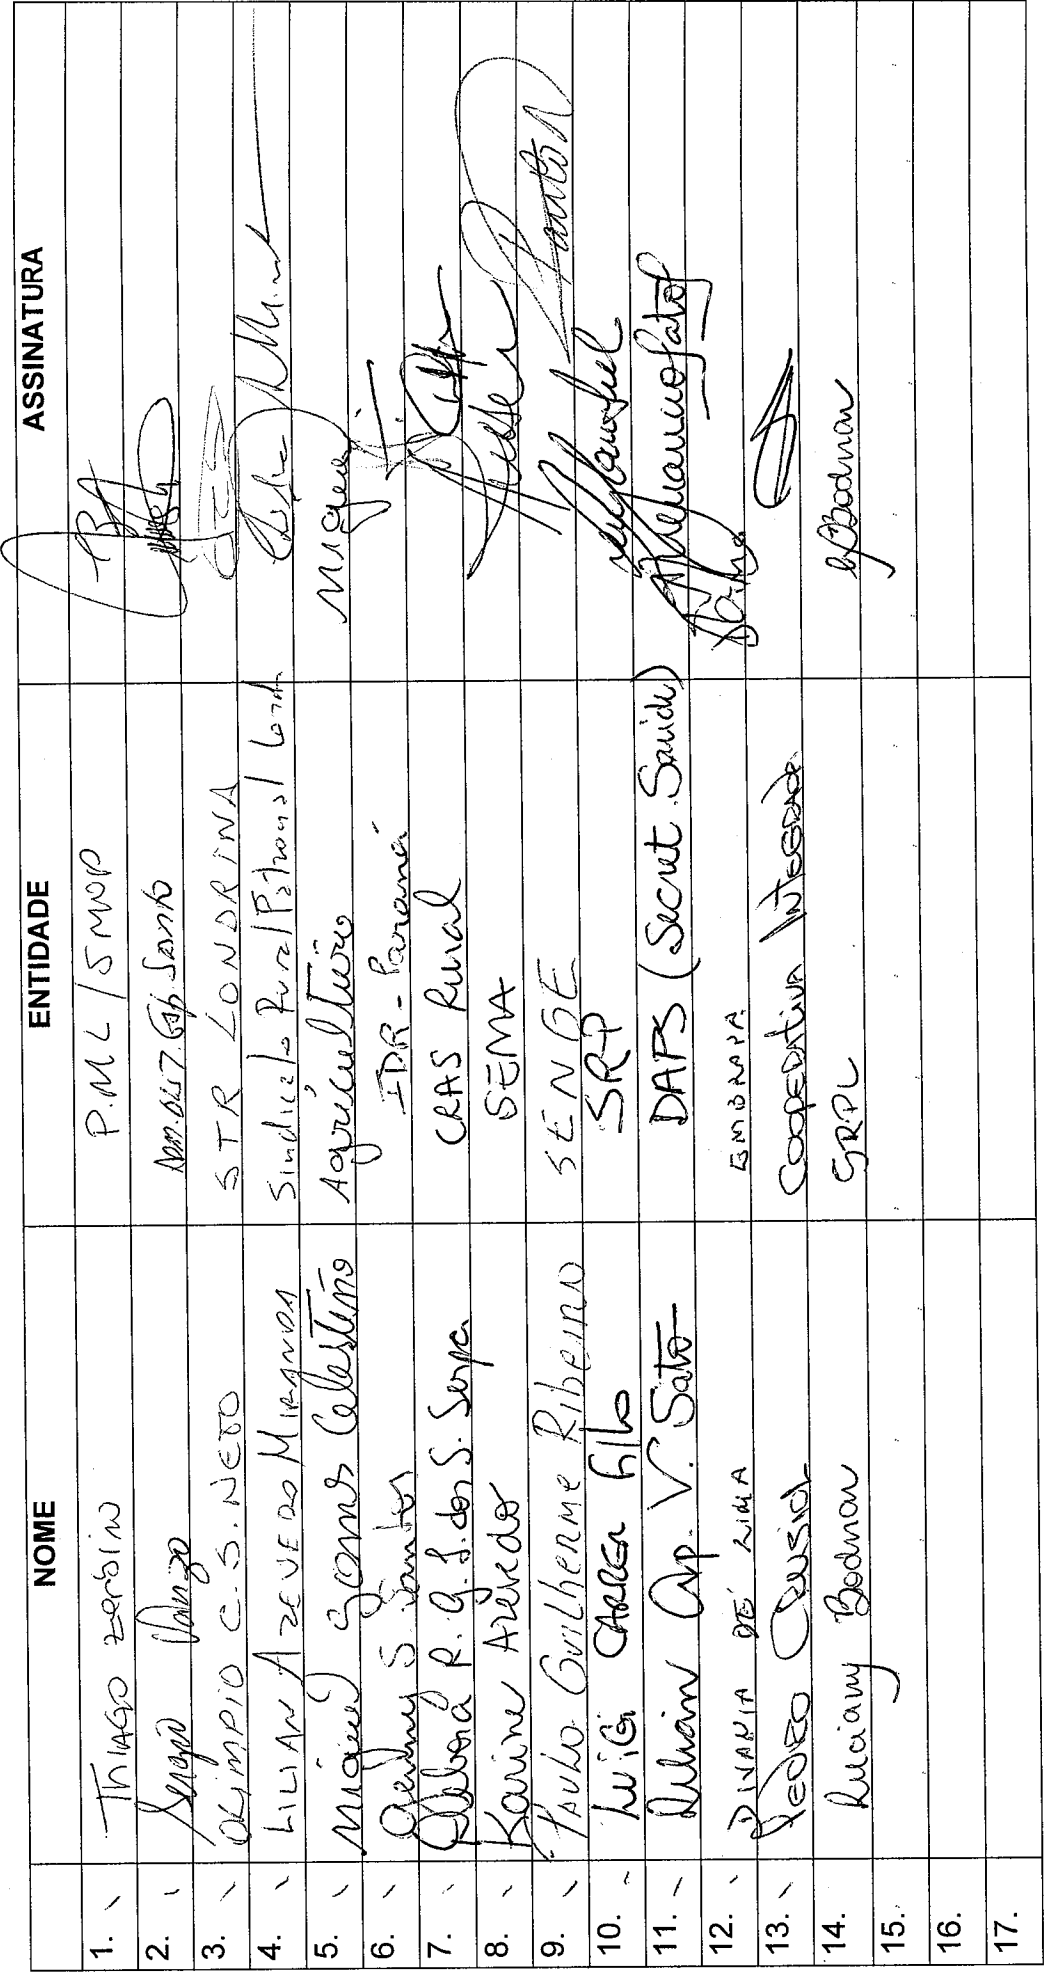 NOME ENTIDADE ASSINATURA
1. THIAGO ZERBIN P.ML / SMOP
2. Sergio Esp. Santo
3. OLIMPIO C.S. NETO STR LONDRINA
4. LILIAN AZEVEDO MIRANDA Sindicato Rural Patronal Lond.
5. Miguel Gomes Celestino Agricultura Miguel
6. S. Santos IDR - Paraná
7. Débora R. G. dos S. Serpa CRAS Rural
8. Karine Azevedo SEMA
9. PAULO Guilherme Ribeiro SENGE
10. LUIGI CARRER Filho SRP
11. Lilian Ap. V. Sato DAPS (Secret. Saúde)
12. DIVANIA DE LIMA EMBRAPA
13. PEDRO COOPERATIVA INTEGRADA
14. Luciany Bodnar GRPL LBodnar
15.
16.
17.